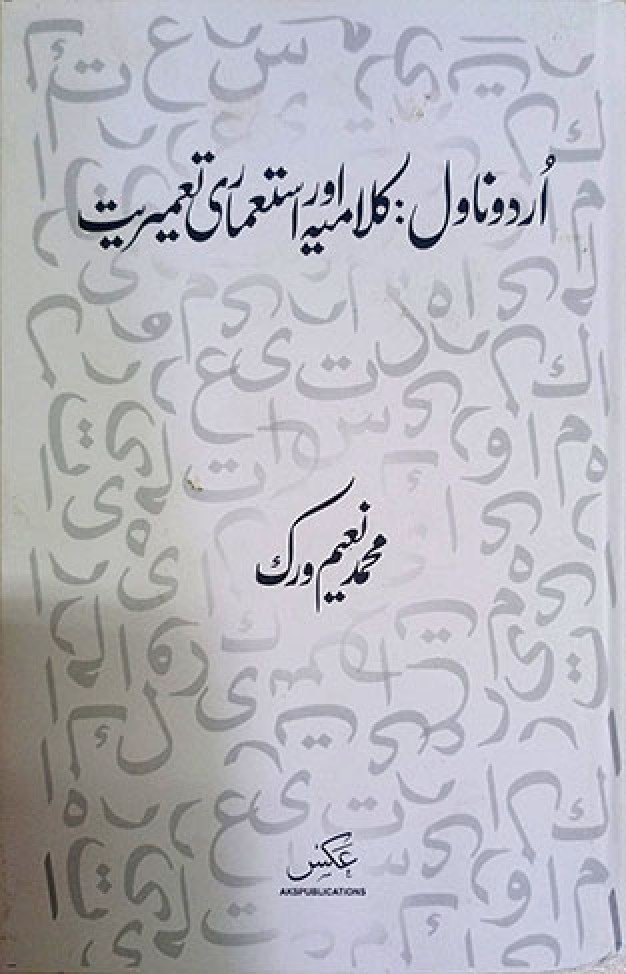 اُردو ناول: کلامیہ اور استعماری تعمیریت
محمد نعیم ورک
عکس
AKSPUBLICATIONS